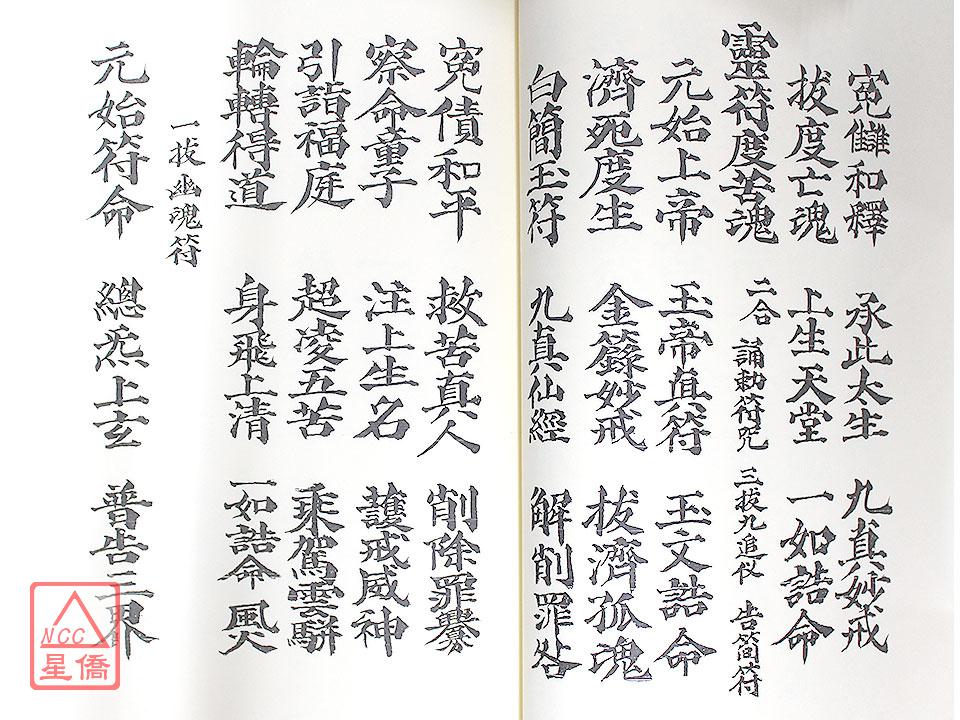 冤讎和釋 承此太生 九真妙戒
拔度亡魂 上生天堂 一如誥命
靈符度苦魂 二合 誦動符咒 三拔九追仪 告简符
元始上帝 玉帝真符 玉文誥命
濟死度生 金籙妙戒 拔濟孤魂
白簡玉符 九真仙經 解削罪咎
冤債和平 救苦真人 削除罪釁
察命童子 注上生名 護戒威神
引詣福庭 超凌五苦 乘駕雲軿
輪轉得道 身飛上清 一如誥命 風火
一拔幽魂符
元始符命 總炁上玄 普告三界
NCC
星僑